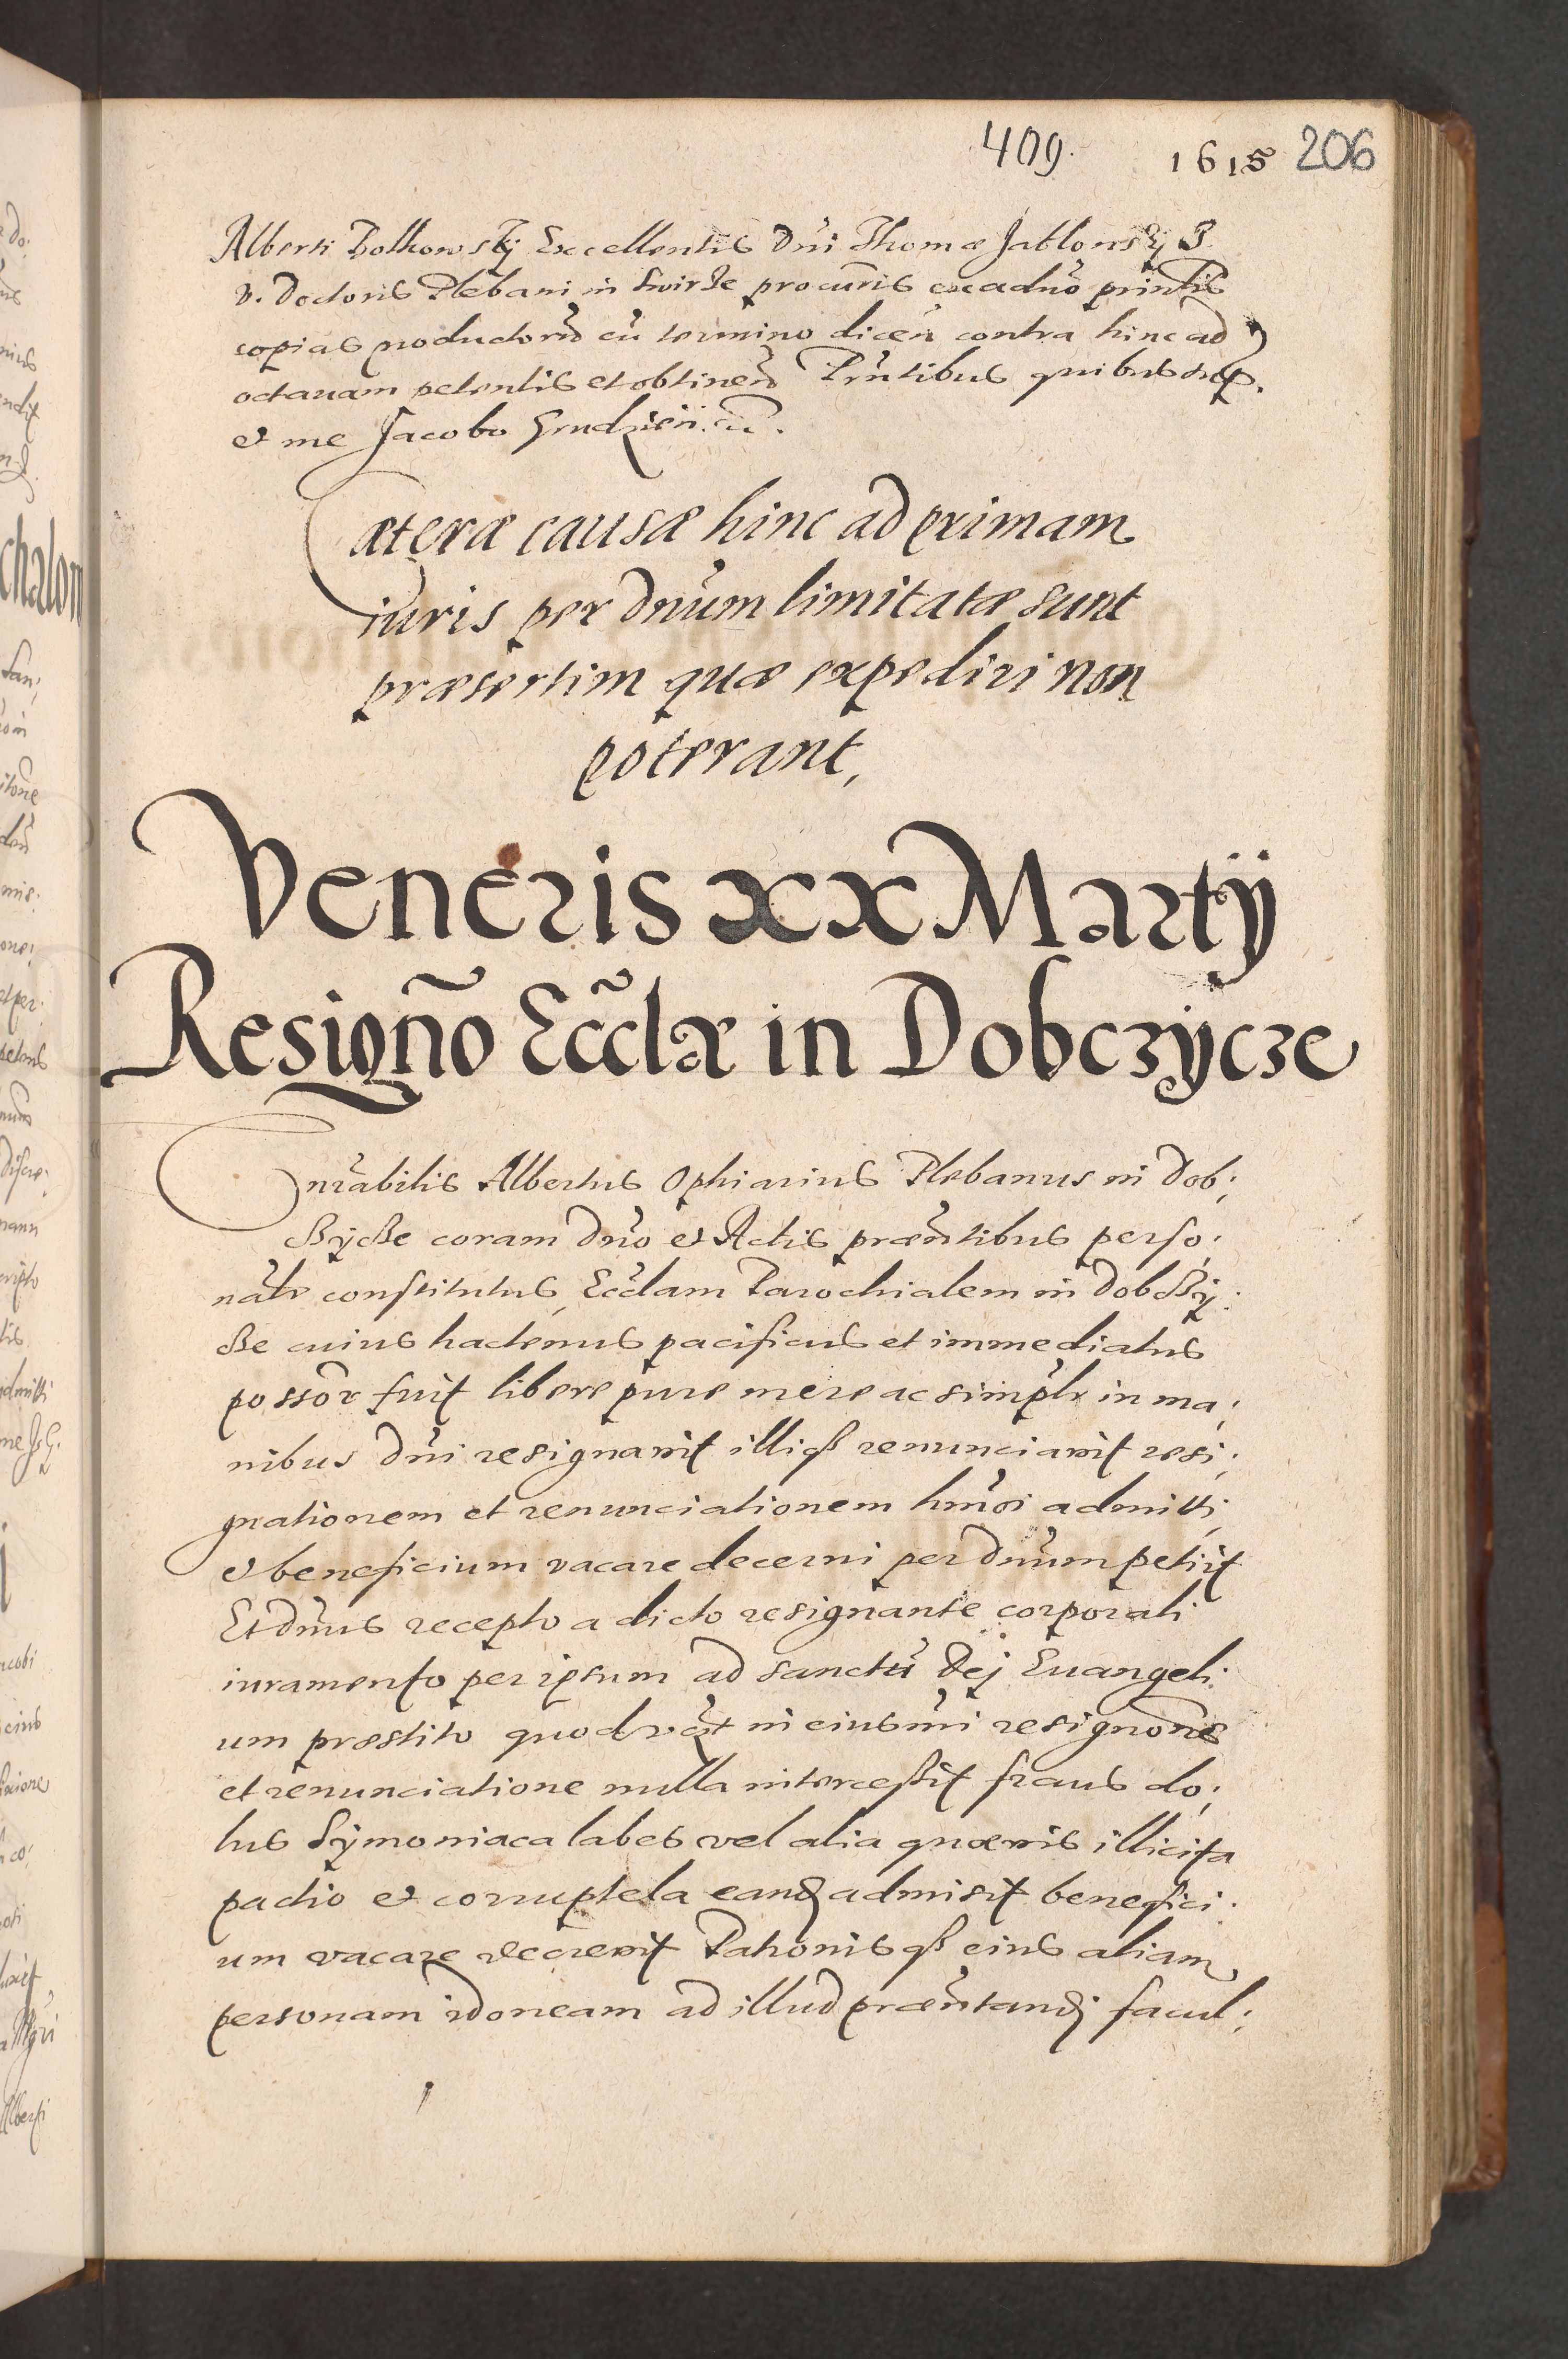 409. 1615 206
Alberti Bolkowskÿ Excellentis Dni Thomæ Jablonskÿ J.
V. Doctoris Plebani in Swirże procuris ex aduo printis
copias productorũ cũ termino dicen contra hinc ad
octauam petentis et obtinen Prntibus quibus sup.
et me Jacobo Grudzień. cũ.
Cæteræ causæ hinc ad primam
iuris per Dnum limitatæ sunt
præsertim quæ expediri non
poterant,
Veneris xx Martÿ
Resigño Eccłæ in Dobczÿcze
Onrabilis Albertus Ophiarius Plebanus in Dob;
czÿcze coram Dno et Actis præntibus perso;
nalr constitutus, Ecclam Parochialem in Dobczÿ;
cze cuius hactenus pacificus et immediatus
possor fuit libere pure mere ac simplr in ma;
nibus Dni resignauit illiqz renunciauit resi;
gnationem et renunciationem hmoi admitti,
et beneficium vacare decerni per Dnum petiit
Et Dnus recepto a dicto resignante corporali
iuramento per ipsum ad sanctũ Dej Euangeli;
um præstito quod in eiusmi resignone
et renunciatione nulla intercessit fraus do;
lus Symoniaca labes vel alia quæuis illicita
pactio et corruptela eand admisit benefici;
um vacare decreuit Patronis qz eius aliam
personam idoneam ad illud præntandi facul;